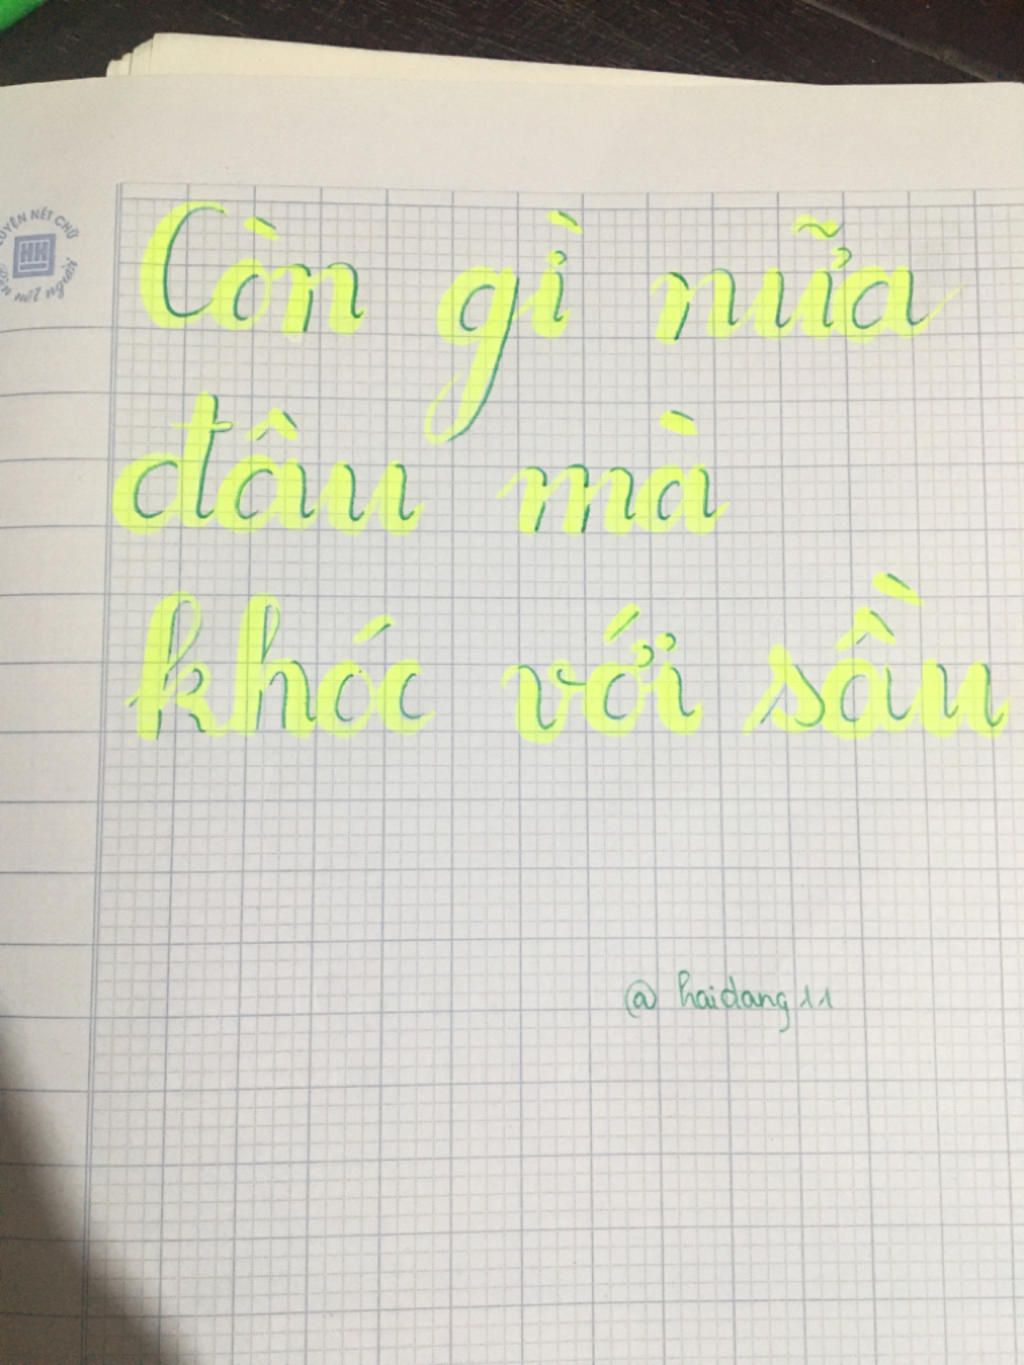 LUYỆN NÉT CHỮ
HH
nết người
Còn gì nữa
đâu mà
khóc với sầu
@ haidang 11